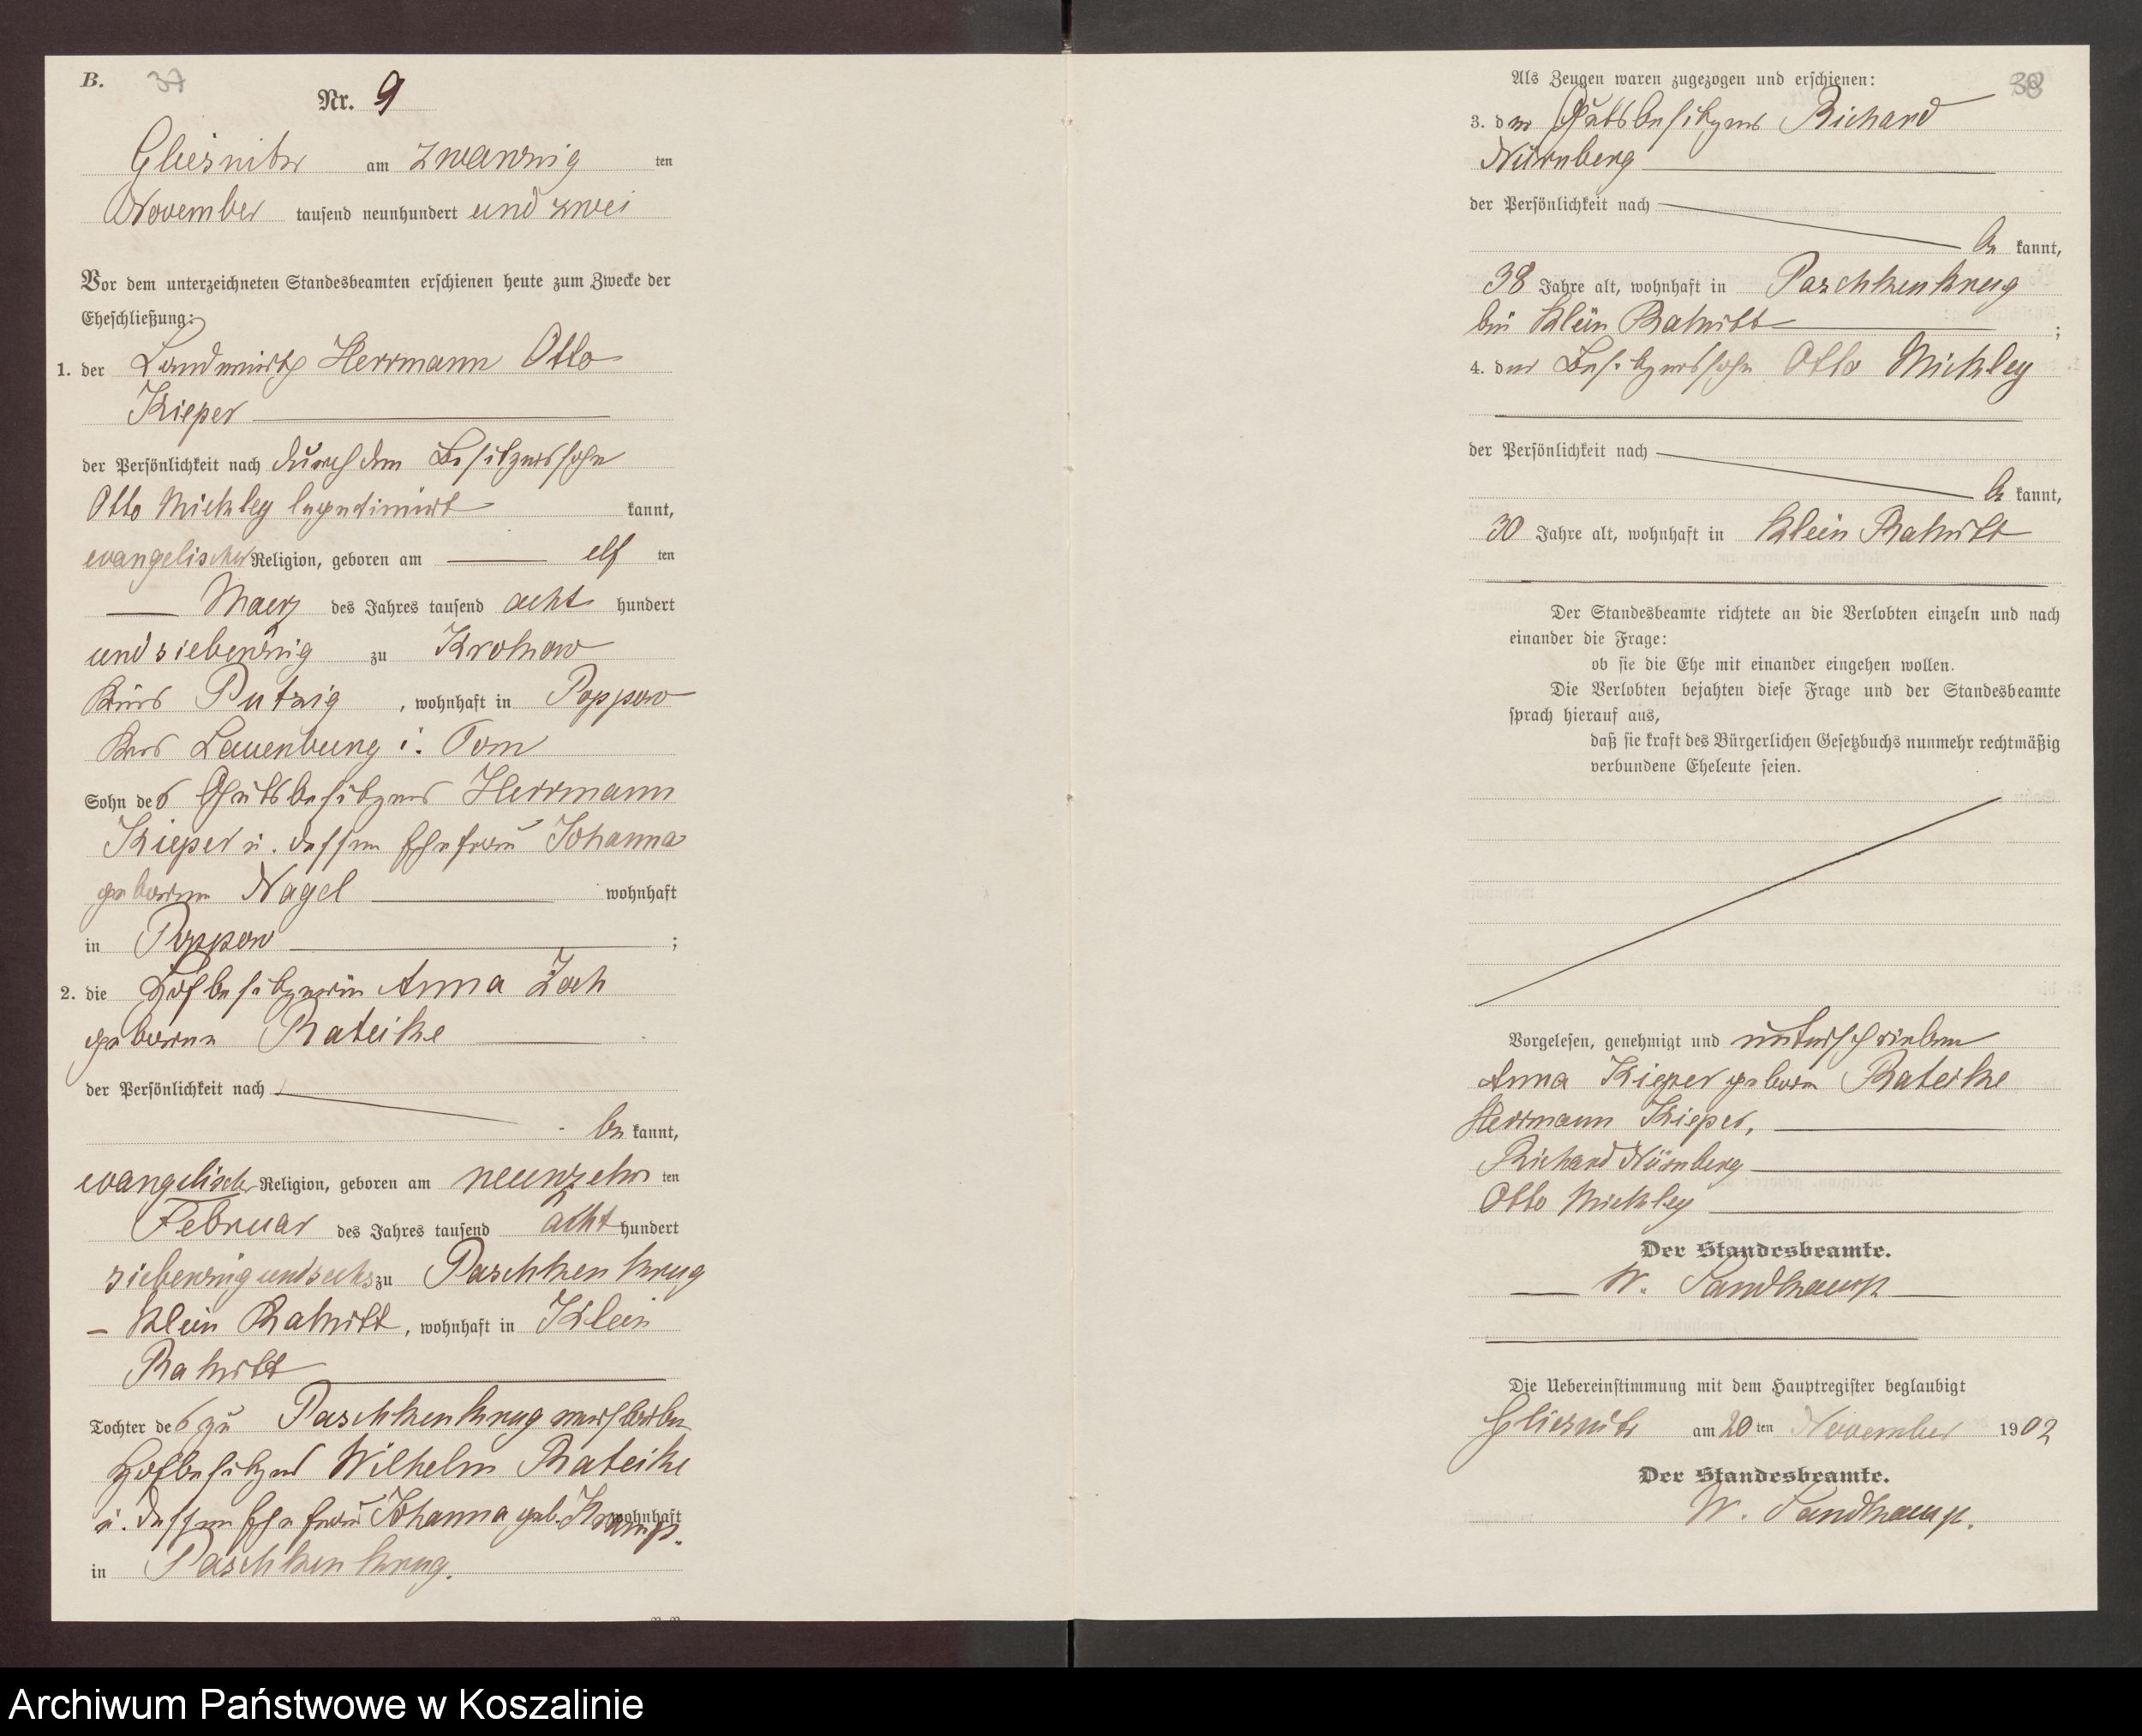 B. 37
Nr. 9
Gliesnitz am zwanzig ten
November tausend neunhundert und zwei
Vor dem unterzeichneten Standesbeamten erschienen heute zum Zwecke der
Eheschließung:
1. der Landwirth Herrmann Otto
Kieper
der Persönlichkeit nach durch den Besitzerssohn
Otto Michley legetimirt kannt,
evangelischer Religion, geboren am elf ten
Maerz des Jahres tausend acht hundert
und siebenzig zu Krokow
Kreis Putzig, wohnhaft in Poppow
Kreis Lauenburg i. Pom
Sohn des Gutsbesitzers Herrmann
Kieper u. dessen Ehefrau Johanna
geborenen Nagel wohnhaft
in Poppow ;
2. die Hofbesitzerin Anna Zoch
geborene Rateike
der Persönlichkeit nach
be kannt,
evangelischer Religion, geboren am neunzehn ten
Februar des Jahres tausend acht hundert
siebenzig und sechs zu Paschken Krug
– Klein Rakitt, wohnhaft in Klein
Rakitt
Tochter des zu Paschkenkrug verstorbenen
Hofbesitzers Wilhelm Rateike
u. dessen Ehefrau Johanna geb. Kramp. wohnhaft
in Paschkenkrug.
38
Als Zeugen waren zugezogen und erschienen:
3. der Gutsbesitzer Richard
Nürnberg
der Persönlichkeit nach
be kannt,
38 Jahre alt, wohnhaft in Paschkenkrug
bei Klein Rakitt ;
4. der Besitzerssohn Otto Michley
der Persönlichkeit nach
be kannt,
30 Jahre alt, wohnhaft in Klein Rakitt
Der Standesbeamte richtete an die Verlobten einzeln und nach
einander die Frage:
ob sie die Ehe mit einander eingehen wollen.
Die Verlobten bejahten diese Frage und der Standesbeamte
sprach hierauf aus,
daß sie kraft des Bürgerlichen Gesetzbuchs nunmehr rechtmäßig
verbundene Eheleute seien.
Vorgelesen, genehmigt und unterschrieben
Anna Kieper geborn Rateike
Herrmann Kieper,
Richard Nürnberg
Otto Michley
Der Standesbeamte.
W. Sandkamp
Die Uebereinstimmung mit dem Hauptregister beglaubigt
Gliesnitz am 20 ten November 1902
Der Standesbeamte.
W. Sandkamp.
Archiwum Państwowe w Koszalinie